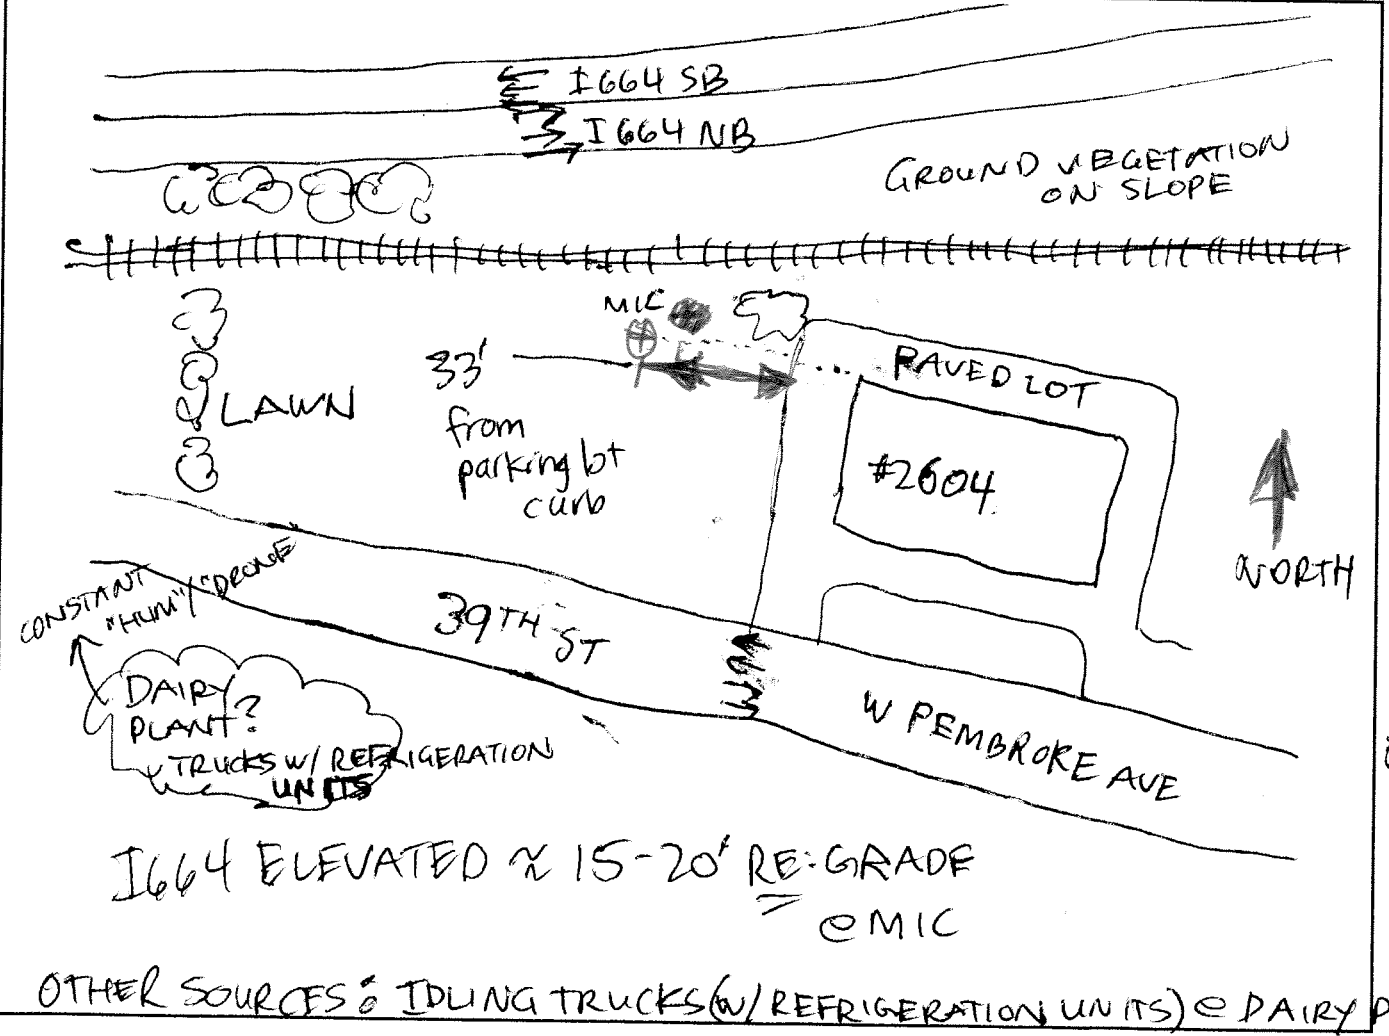 I664 SB
I664 NB
GROUND VEGETATION
ON SLOPE
MIC
33'
from
parking lot
curb
LAWN
PAVED LOT
#2604
NORTH
CONSTANT
"HUM"/"DRONE
39TH ST
DAIRY
PLANT?
TRUCKS W/ REFRIGERATION
UNITS
W PEMBROKE AVE
I664 ELEVATED ≈ 15-20' RE: GRADE
@ MIC
OTHER SOURCES: IDLING TRUCKS (W/ REFRIGERATION UNITS) @ DAIRY P